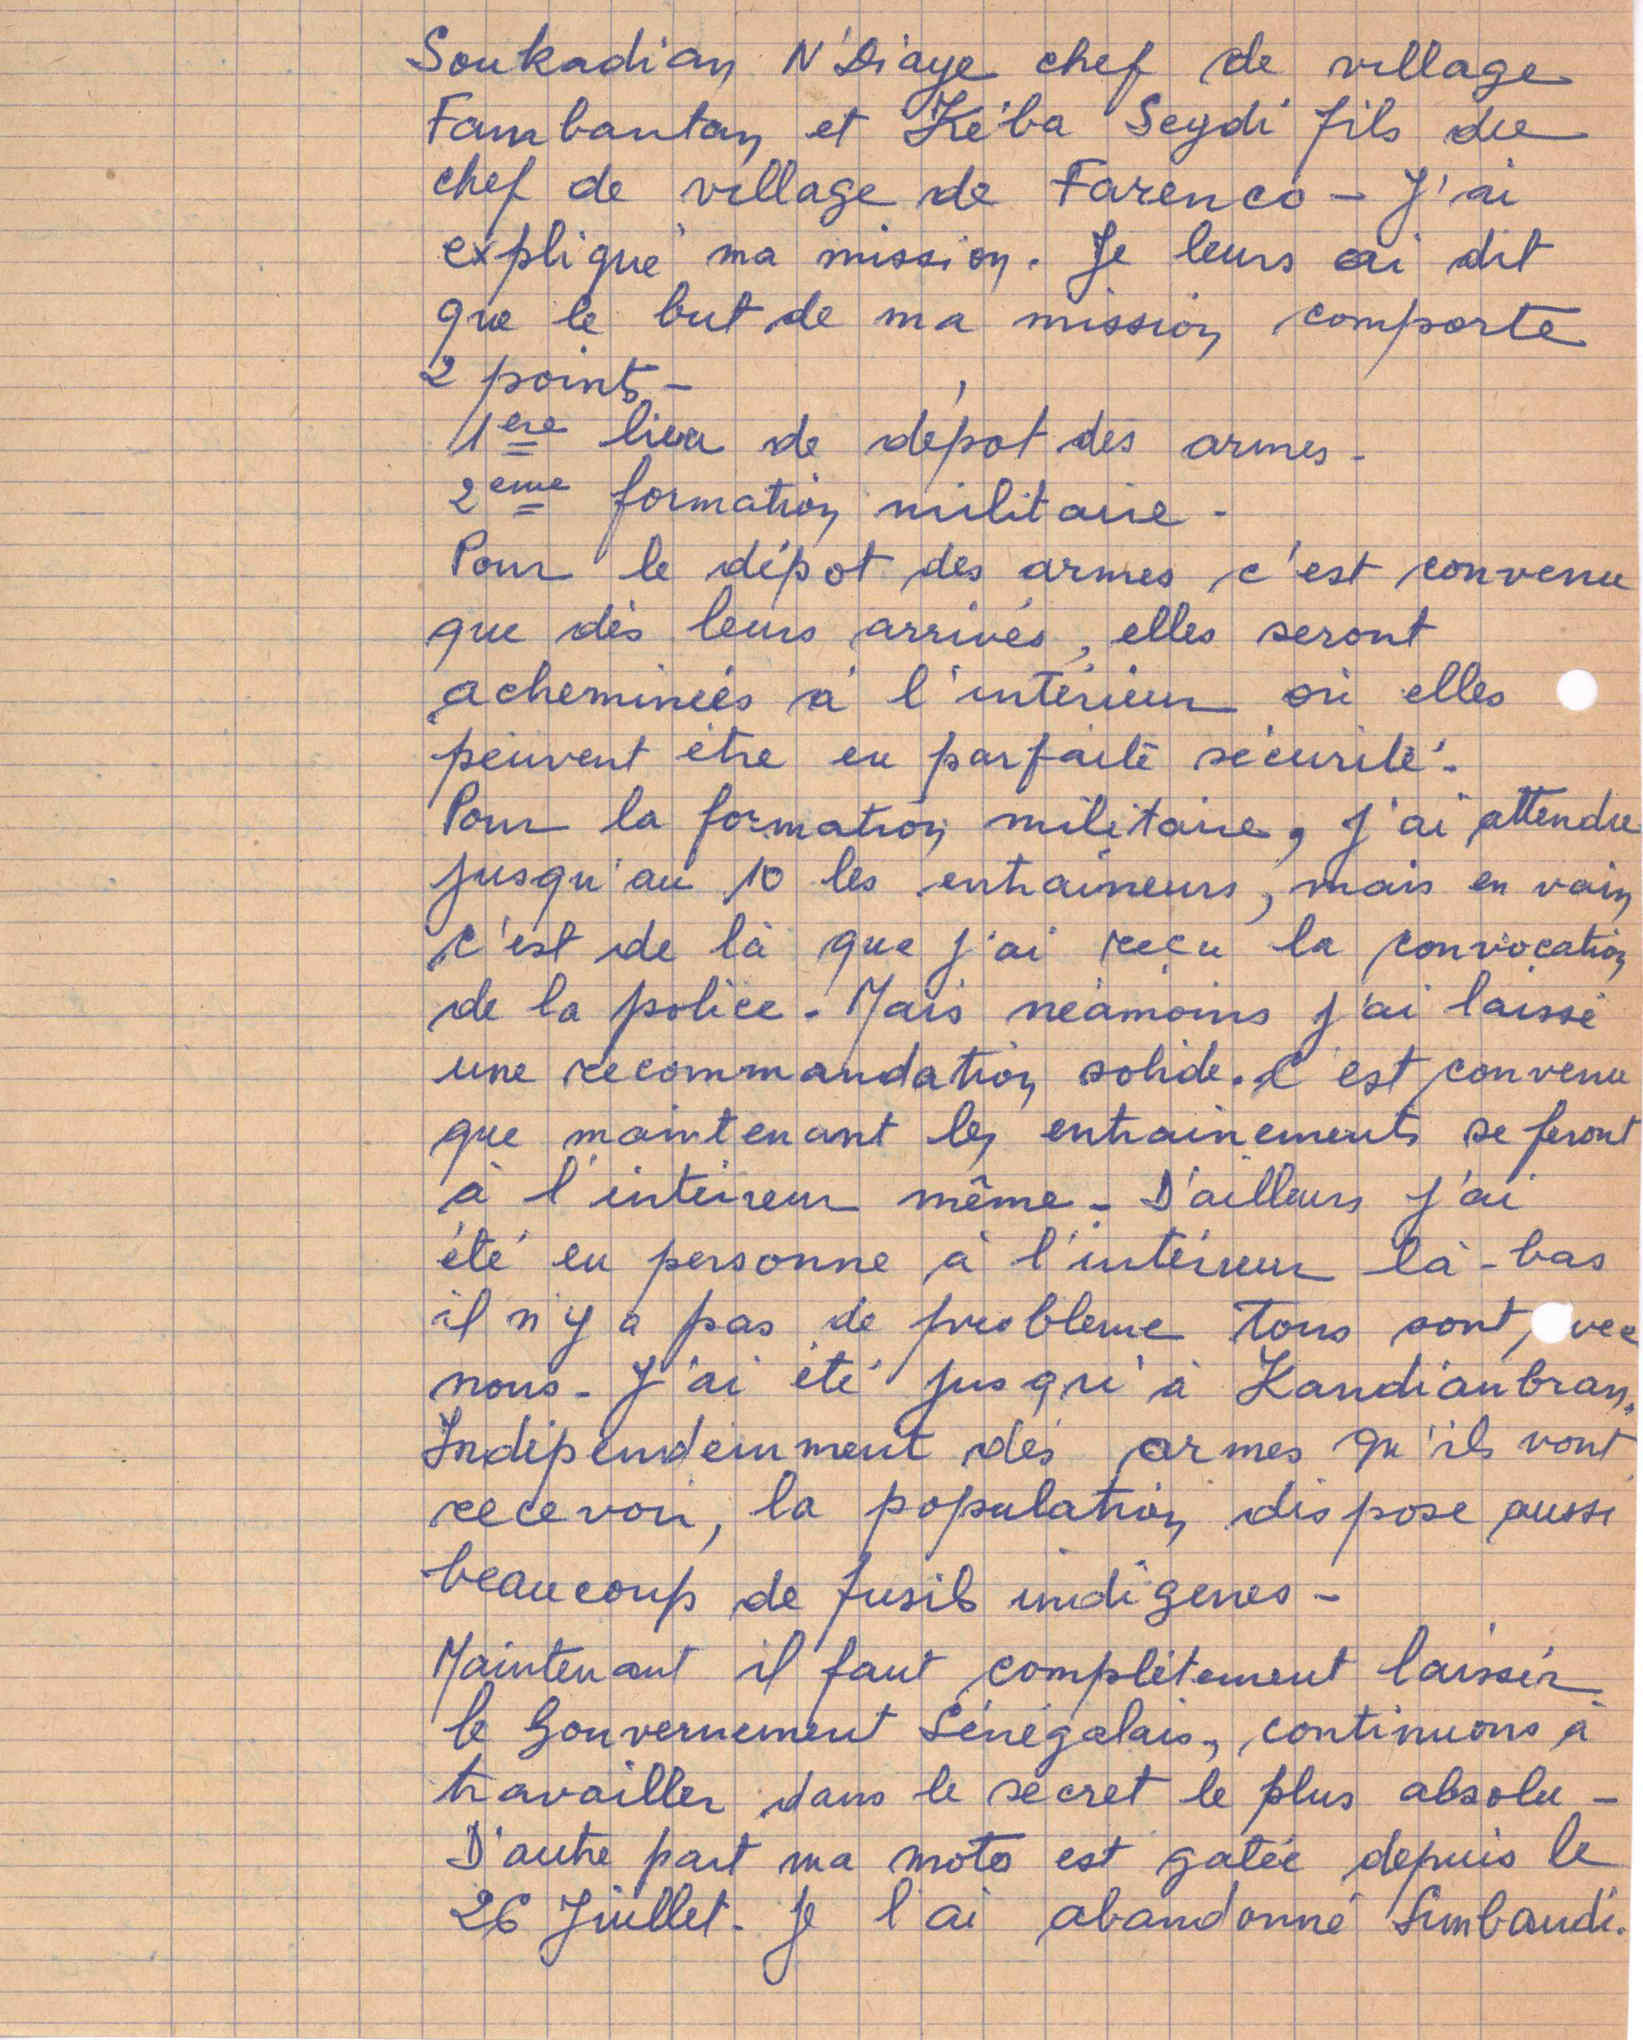 Soukadian N'Diaye chef de village
Fambantan et Kéba Seydi fils du
chef de village de Farenco - J'ai
expliqué ma mission. Je leurs ai dit
que le but de ma mission comporte
2 points -
1ère lieu de dépot des armes -
2ème formation militaire -
Pour le dépot des armes c'est convenu
que dès leurs arrivés, elles seront
acheminées à l'intérieur où elles
peuvent être en parfaite sécurité -
Pour la formation militaire, j'ai attendu
jusqu'au 10 les entraineurs, mais en vain
c'est de là que j'ai reçu la convocation
de la police - Mais néamoins j'ai laissé
une recommandation solide. C'est convenu
que maintenant les entrainements se feront
à l'intérieur même - D'ailleurs j'ai
été en personne à l'intérieur là-bas
il n'y a pas de problème tous sont avec
nous - J'ai été jusqu'à Kandianbran.
Indépendemment des armes qu'ils vont
recevoir, la population dispose aussi
beaucoup de fusils indigenes -
Maintenant il faut complètement laisser
le Gouvernement Sénégalais, continuons à
travailler dans le secret le plus absolu -
D'autre part ma moto est gatée depuis le
26 Juillet - Je l'ai abandonné Simbandi.